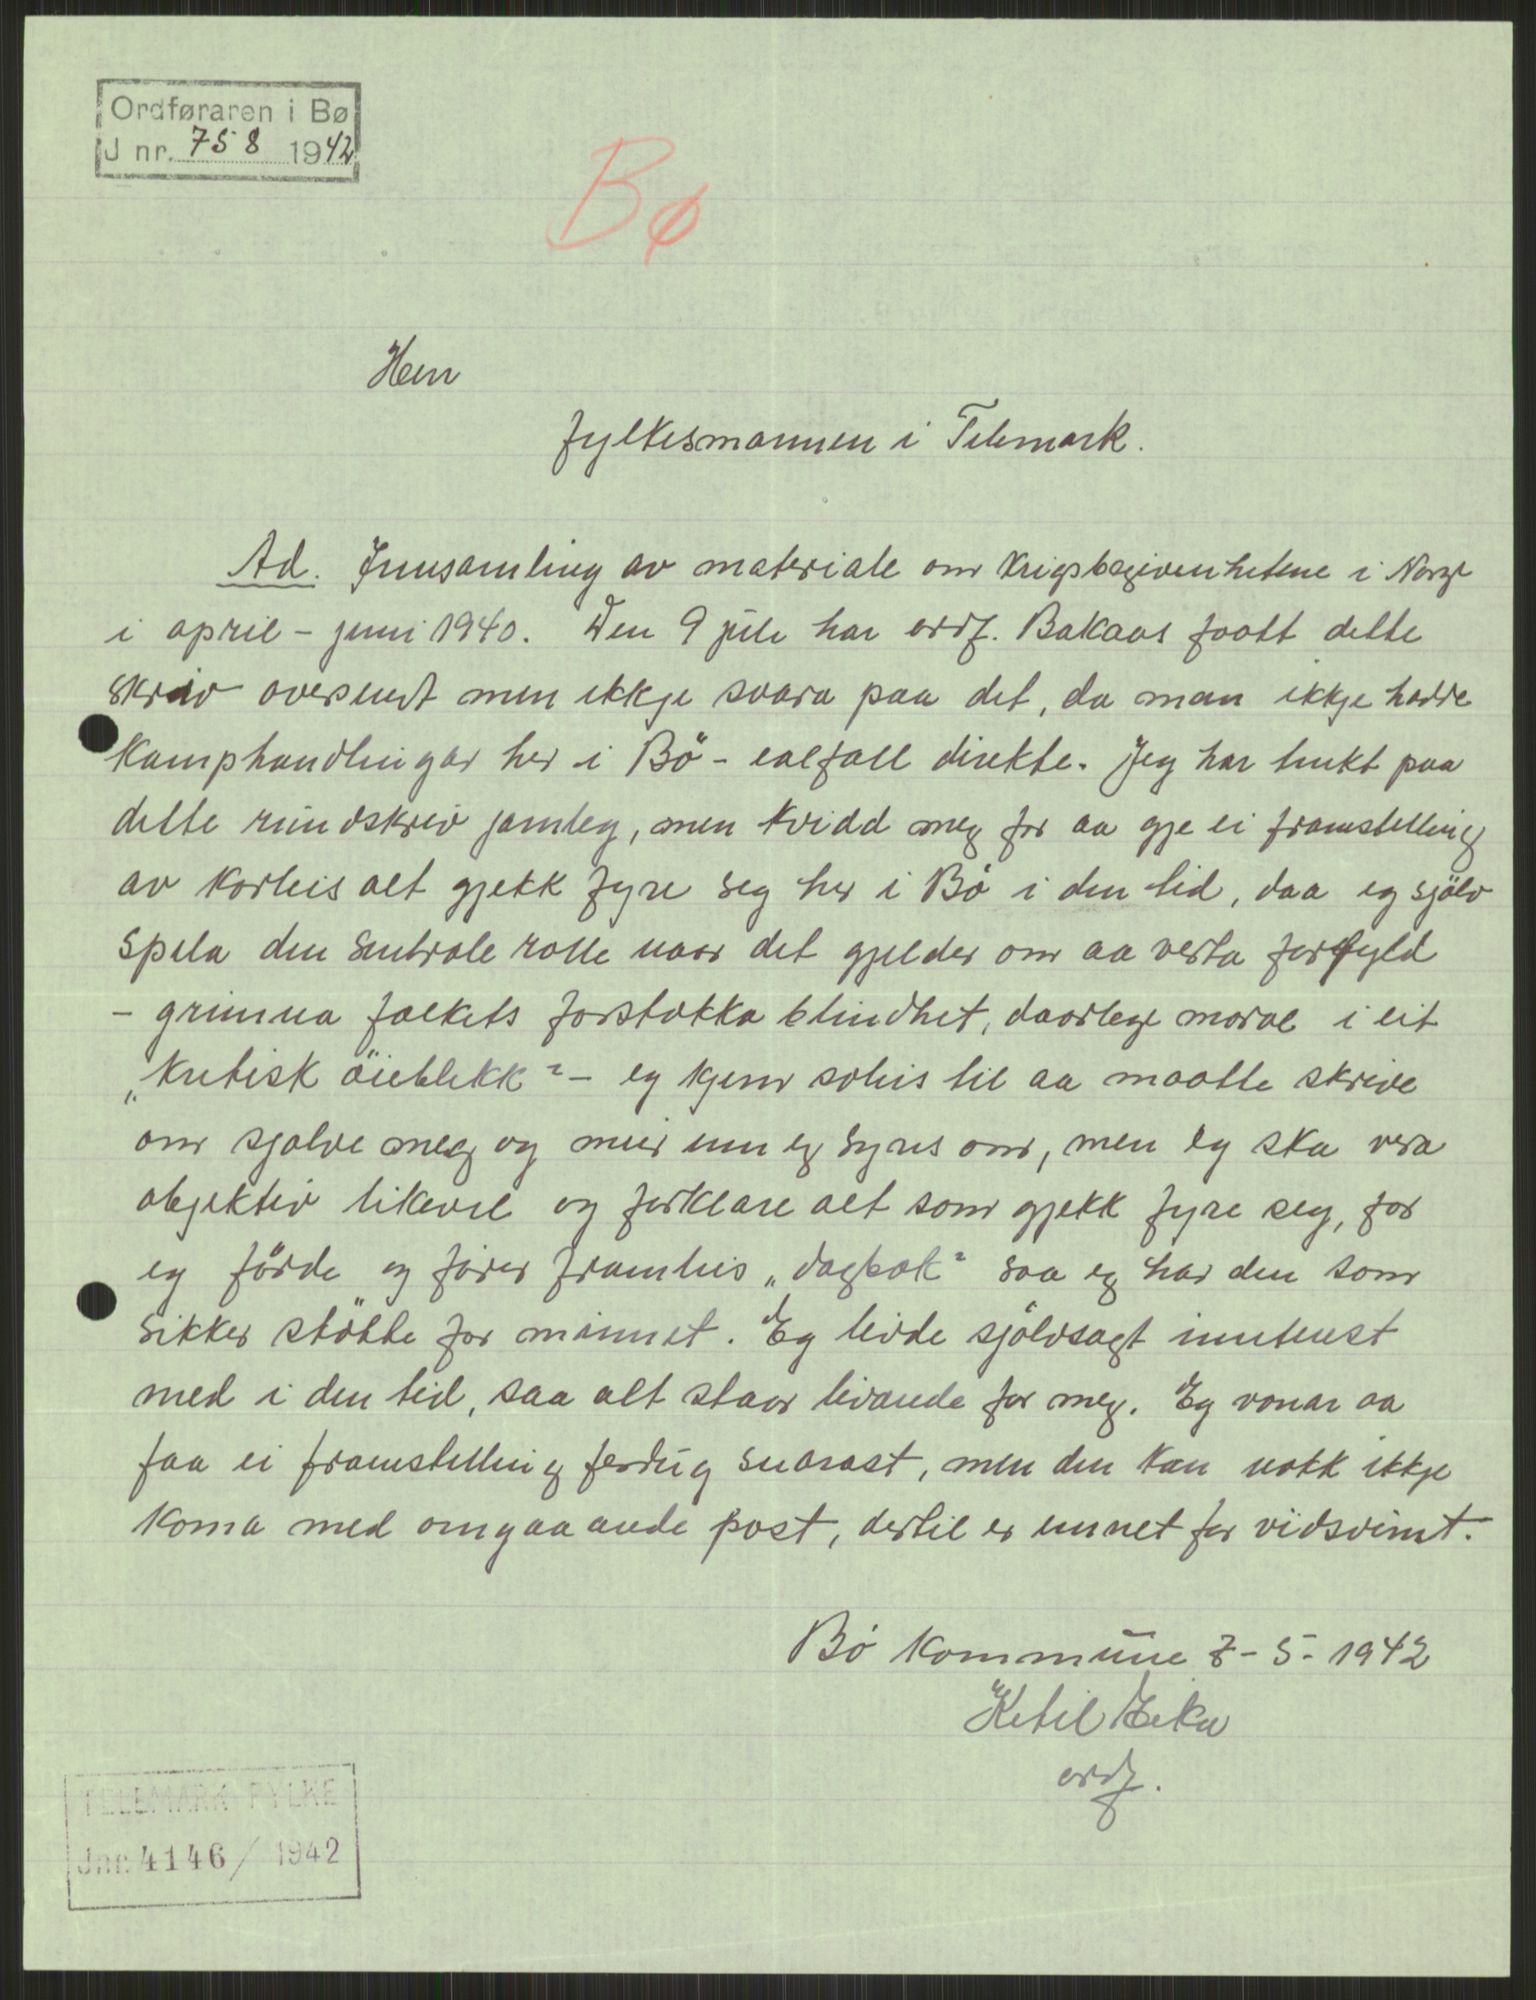 Ordføraren i Bø
J nr. 758 1942
Bø
Herr
fylkesmannen i Telemark.
Ad. Innsamling av materiale om krigsbegivenhetene i Norge
i april - juni 1940. Den 9 juli har ordf. Bakaas faatt dette
skriv oversendt men ikkje svara paa det, da man ikkje hadde
kamphandlingar her i Bö - ialfall direkte. Jeg har tenkt paa
dette rundskriv jamleg, men kvidd meg for aa gje ei framstelling
av korleis alt gjekk fyre seg her i Bö i den tid, daa eg sjölv
spela den sentrale rolle naar det gjelder om aa verta forfyld
- grunna folkets forstokka blindhet, daarlege moral i eit
„kritisk öieblikk" - eg kjem soleis til aa maatte skrive
om sjolve meg og meir enn eg synes om, men eg ska vera
objektiv likevel og forklare alt som gjekk fyre seg, for
eg förde og förer framleis „dagbok" saa eg har den som
sikker stötte for minnet. Eg levde sjölvsagt inntenst
med i den tid, saa alt staar livande for meg. Eg vonar aa
faa ei framstelling ferdug snarast, men den kan nokk ikkje
koma med omgaaande post, dertil er emnet for vidsvimt.
Bö kommune 7-5-1942
Ketil Eika
ordf.
TELEMARK FYLKE
Jnr. 4146 / 1942